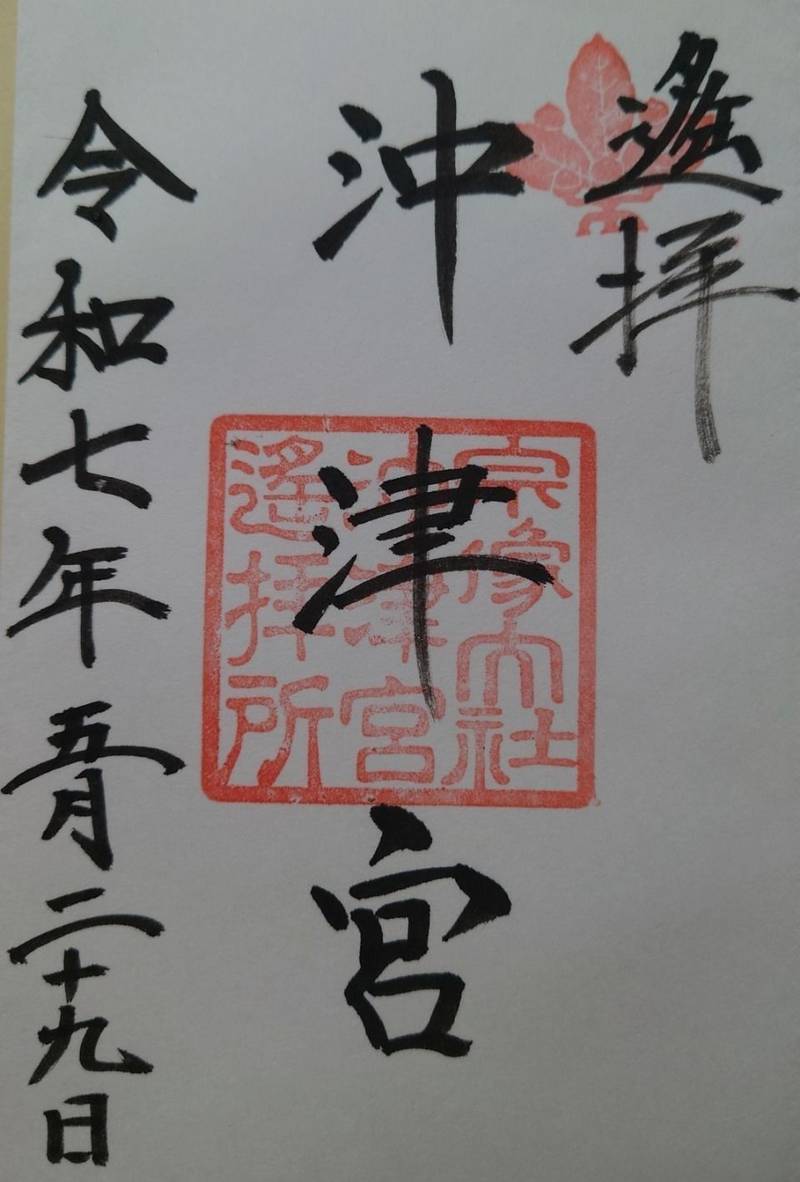 遙拝
沖津宮
宗像大社
沖津宮
遙拝所
令和七年五月二十九日